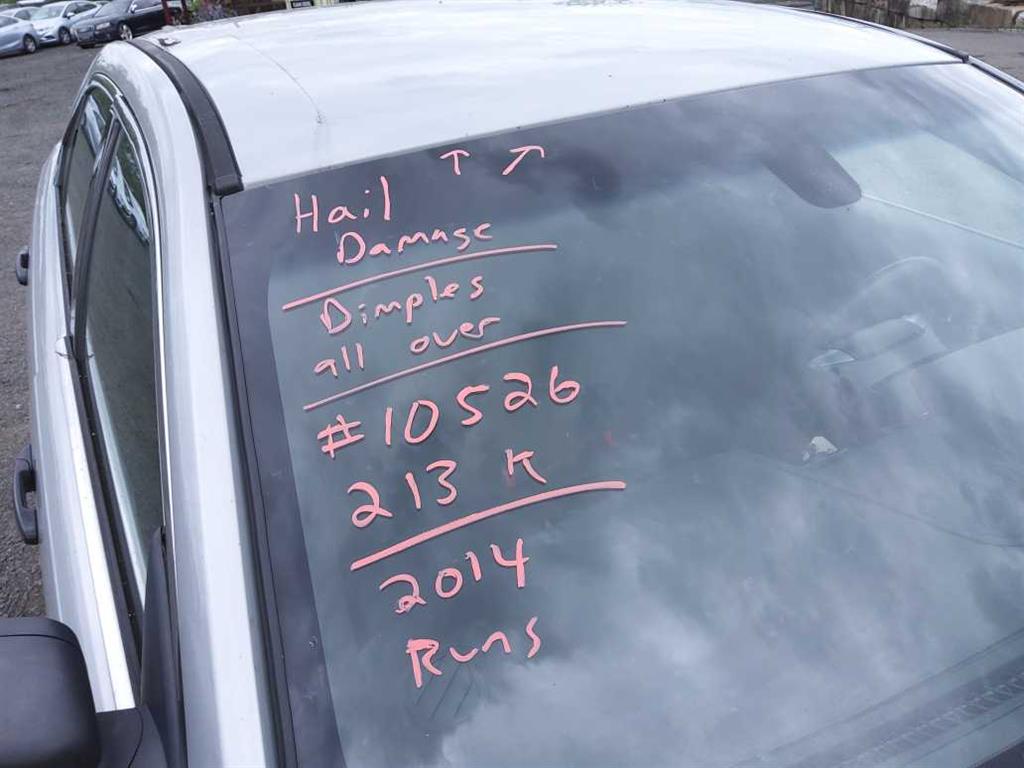 ↑ ↗
Hail
Damage
Dimples
all over
#10526
213 K
2014
Runs